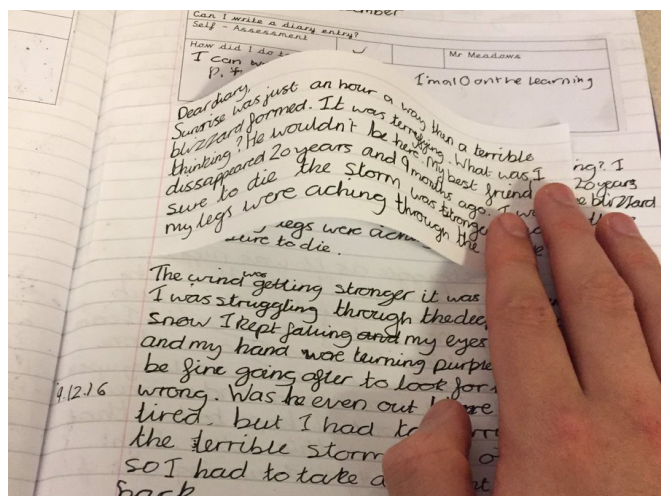 Can I write a diary entry?
Self - Assessment
Mr Meadows
How did I do
I can
I'm a 10 on the learning
Dear diary,
Sunrise was just an hour a way than a terrible
blizzard formed. It was terrifying. What was I
thinking? He wouldn't be here. My best friend
dissappeared 20 years and 9 months ago. I
sure to die the storm was
my legs were aching through the
ing? I
20 years
blizzard
legs were
sure to die.
The wind was getting stronger it was
I was struggling through the
snow I kept falling and my eyes
and my hand were turning purple
be fine going after to look for
9.12.16
wrong. Was he even out
tired, but I had
the terrible storm
so I had to take a
back